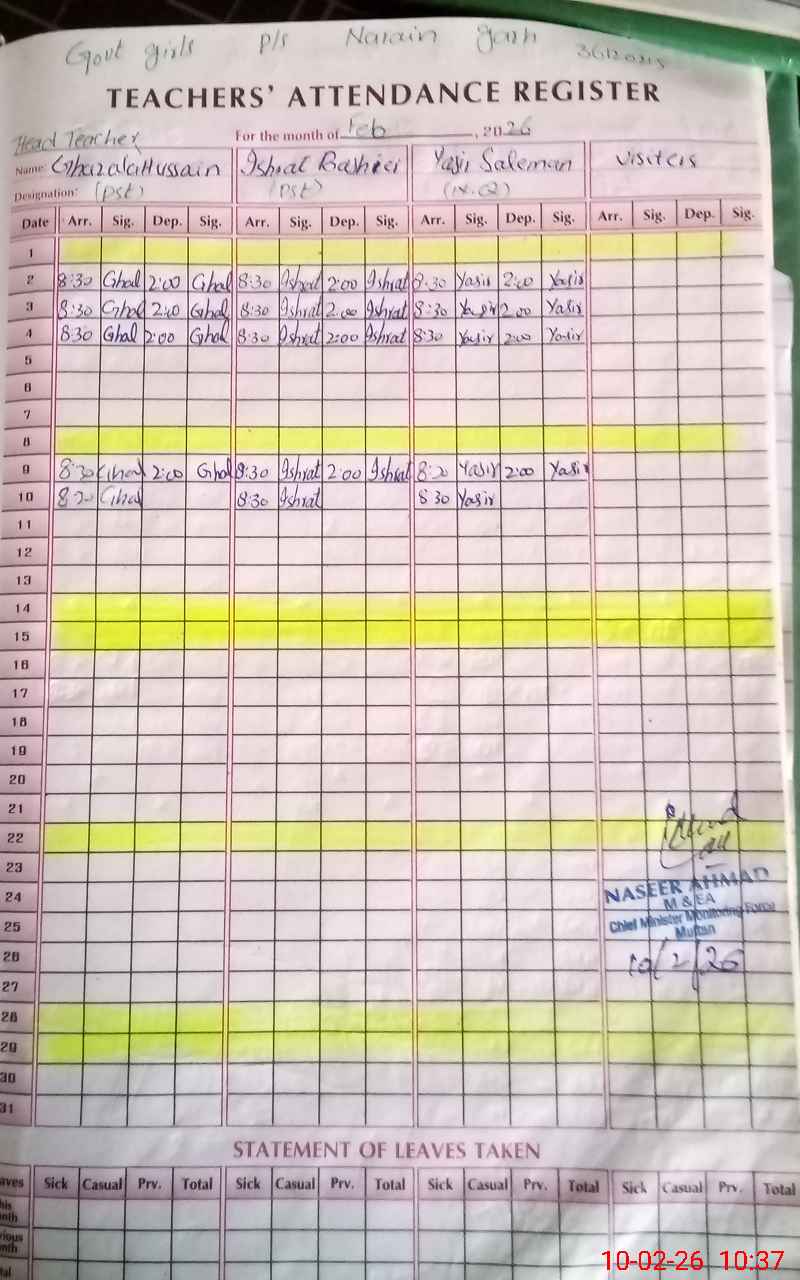 Govt girls p/s Narain garh 36120215
TEACHERS' ATTENDANCE REGISTER
Head Teacher For the month of Feb, 2026
Name: Ghazala Hussain Ishrat Bashir Yasir Saleman visiters
Designation: (PST) (PST) (N.Q)
Date Arr. Sig. Dep. Sig. Arr. Sig. Dep. Sig. Arr. Sig. Dep. Sig. Arr. Sig. Dep. Sig.
1
2 8:30 Ghal 2:00 Ghal 8:30 Ishrat 2:00 Ishrat 8:30 Yasir 2:00 Yasir
3 8:30 Ghal 2:00 Ghal 8:30 Ishrat 2:00 Ishrat 8:30 Yasir 2:00 Yasir
4 8:30 Ghal 2:00 Ghal 8:30 Ishrat 2:00 Ishrat 8:30 Yasir 2:00 Yasir
5
6
7
8
9 8:30 Ghal 2:00 Ghal 8:30 Ishrat 2:00 Ishrat 8:30 Yasir 2:00 Yasir
10 8:30 Ghal 8:30 Ishrat 8 30 Yasir
11
12
13
14
15
16
17
18
19
20
21
22
23
24
25
26
27
28
29
30
31
NASEER AHMAD
M & EA
Chief Minister Monitoring Force
Multan
10/2/26
STATEMENT OF LEAVES TAKEN
aves Sick Casual Prv. Total Sick Casual Prv. Total Sick Casual Prv. Total Sick Casual Prv. Total
his
nth
vious
nth
tal
10-02-26 10:37